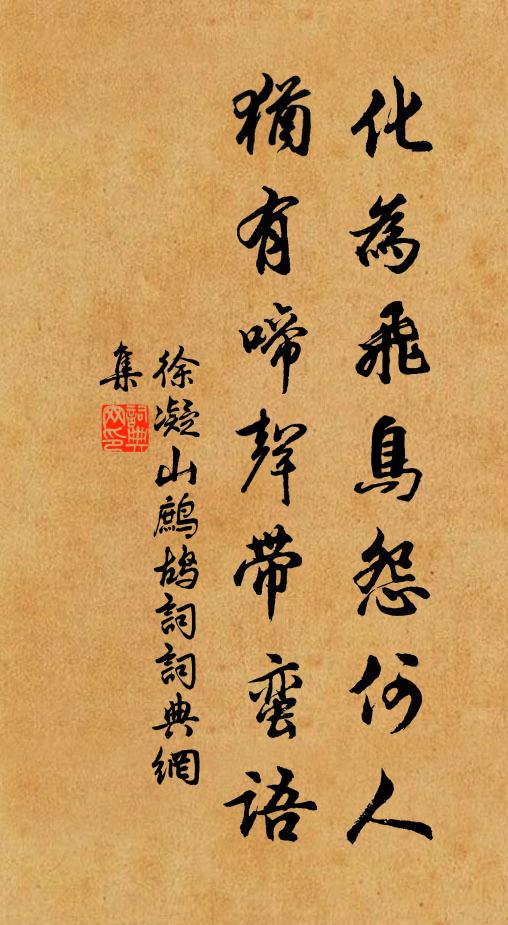 化為飛鳥怨何人
猶有啼聲帶蛮語
徐凝山鷓鴣詞詞典網
集
詞典網印